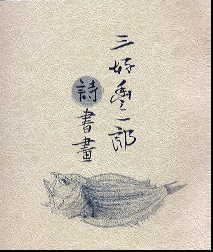 三好豊一郎
詩書畫